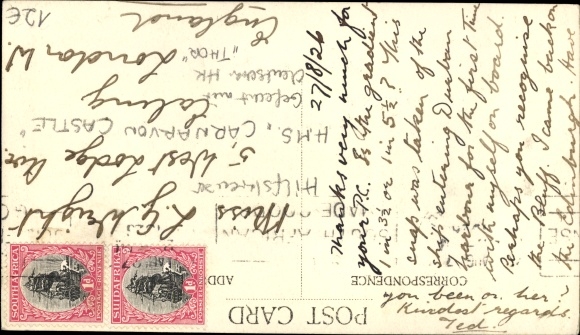 POST CARD
CORRESPONDENCE
ADD
27/8/26
Thanks very much for
your P.C. Is the gradient
1 in 3½ or 1 in 5½? This
snap was taken of the
ship entering Durban
Harbour for the first time
with myself on board.
Perhaps you recognise
the Bluff. I came back on
the Edinburgh. Have
you been on her?
Kindest regards.
Ted.
Miss L.G. Wright
5, West Lodge Ave.
Ealing
London W.
England
HILFSKREUZER
H.M.S. "CARNARVON CASTLE"
Gefecht mit
deutschem HK
"THOR"
12€
SUID-AFRIKA
1D
SOUTH AFRICA
1D